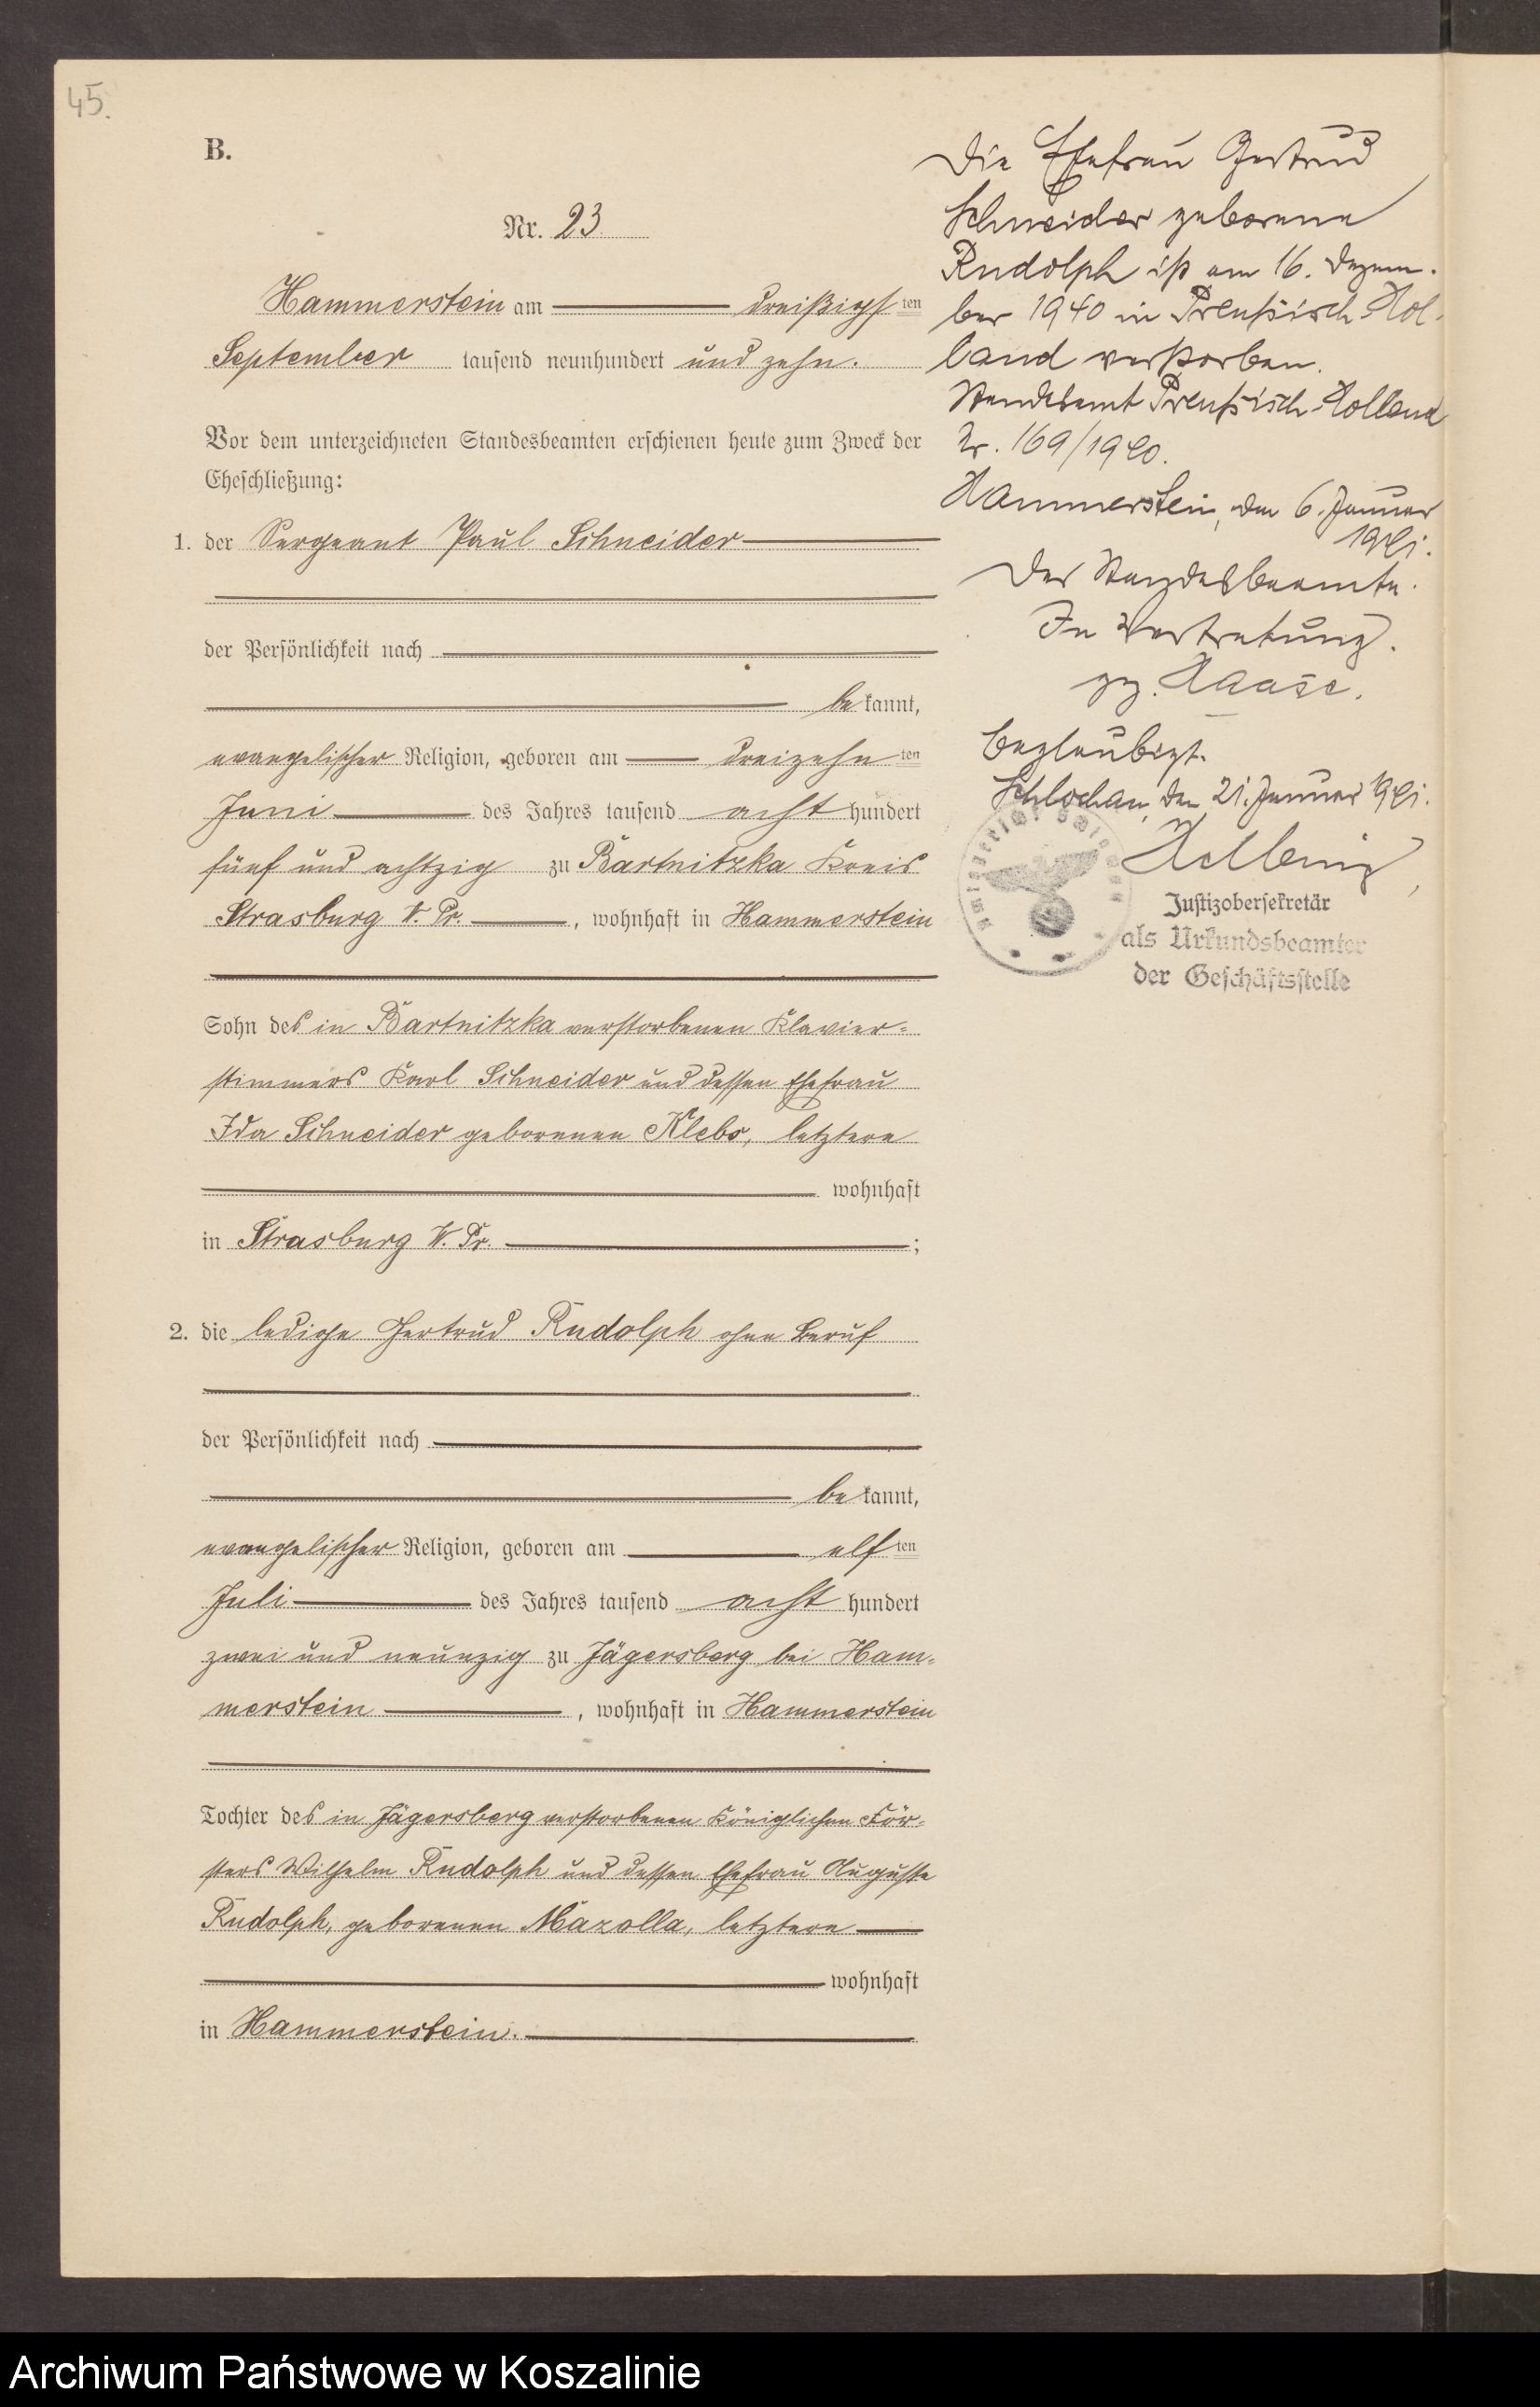 45.
B.
Nr. 23
Hammerstein am dreißigsten
September tausend neunhundert und zehn.
Vor dem unterzeichneten Standesbeamten erschienen heute zum Zweck der
Eheschließung:
1. der Sergeant Paul Schneider
der Persönlichkeit nach
bekannt,
evangelischer Religion, geboren am dreizehnten
Juni des Jahres tausend acht hundert
fünf und achtzig zu Bartnitzka Kreis
Strasburg W. Pr., wohnhaft in Hammerstein
Sohn des in Bartnitzka verstorbenen Klavier-
stimmers Karl Schneider und dessen Ehefrau
Ida Schneider geborenen Klebs, letztere
wohnhaft
in Strasburg W. Pr. ;
2. die ledige Gertrud Rudolph ohne Beruf
der Persönlichkeit nach
bekannt,
evangelischer Religion, geboren am elften
Juli des Jahres tausend acht hundert
zwei und neunzig zu Jägersberg bei Ham-
merstein, wohnhaft in Hammerstein
Tochter des in Jägersberg verstorbenen Königlichen För-
sters Wilhelm Rudolph und dessen Ehefrau Auguste
Rudolph, geborenen Mazolla, letztere
wohnhaft
in Hammerstein.
Die Ehefrau Gertrud
Schneider geborene
Rudolph ist am 16. Dezem-
ber 1940 in Preußisch-Hol-
land verstorben.
Standesamt Preußisch-Holland
Nr. 169/1940.
Hammerstein, den 6. Januar
1941.
Der Standesbeamte.
In Vertretung.
gez. Haase.
Beglaubigt.
Schlochau, den 21. Januar 1941.
Justizobersekretär
als Urkundsbeamter
der Geschäftsstelle
Archiwum Państwowe w Koszalinie